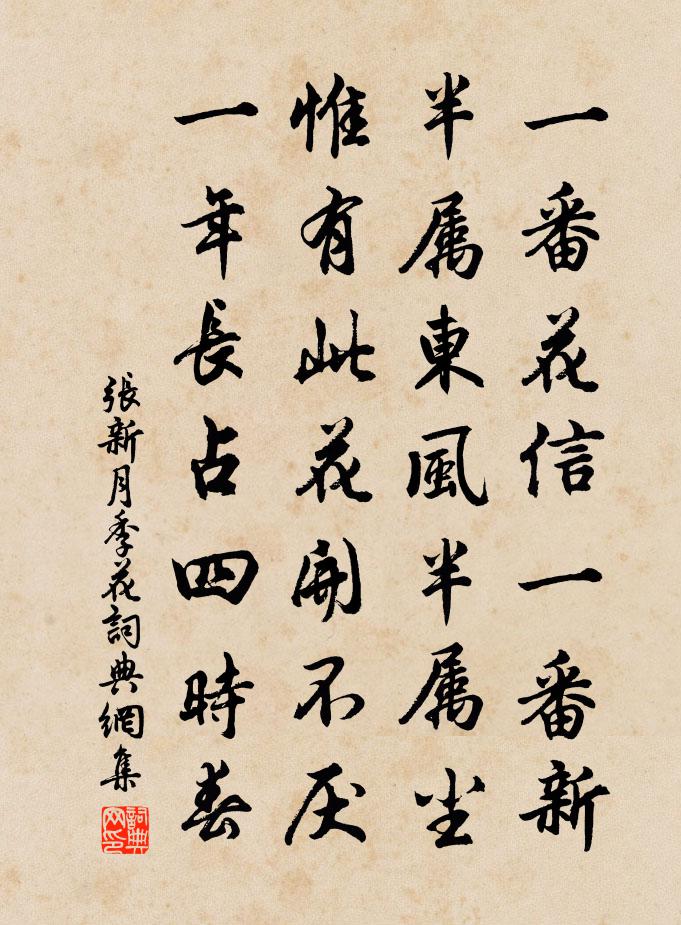 一番花信一番新
半属東風半属尘
惟有此花開不厌
一年長占四時春
張新月季花詞典網集
詞典网印